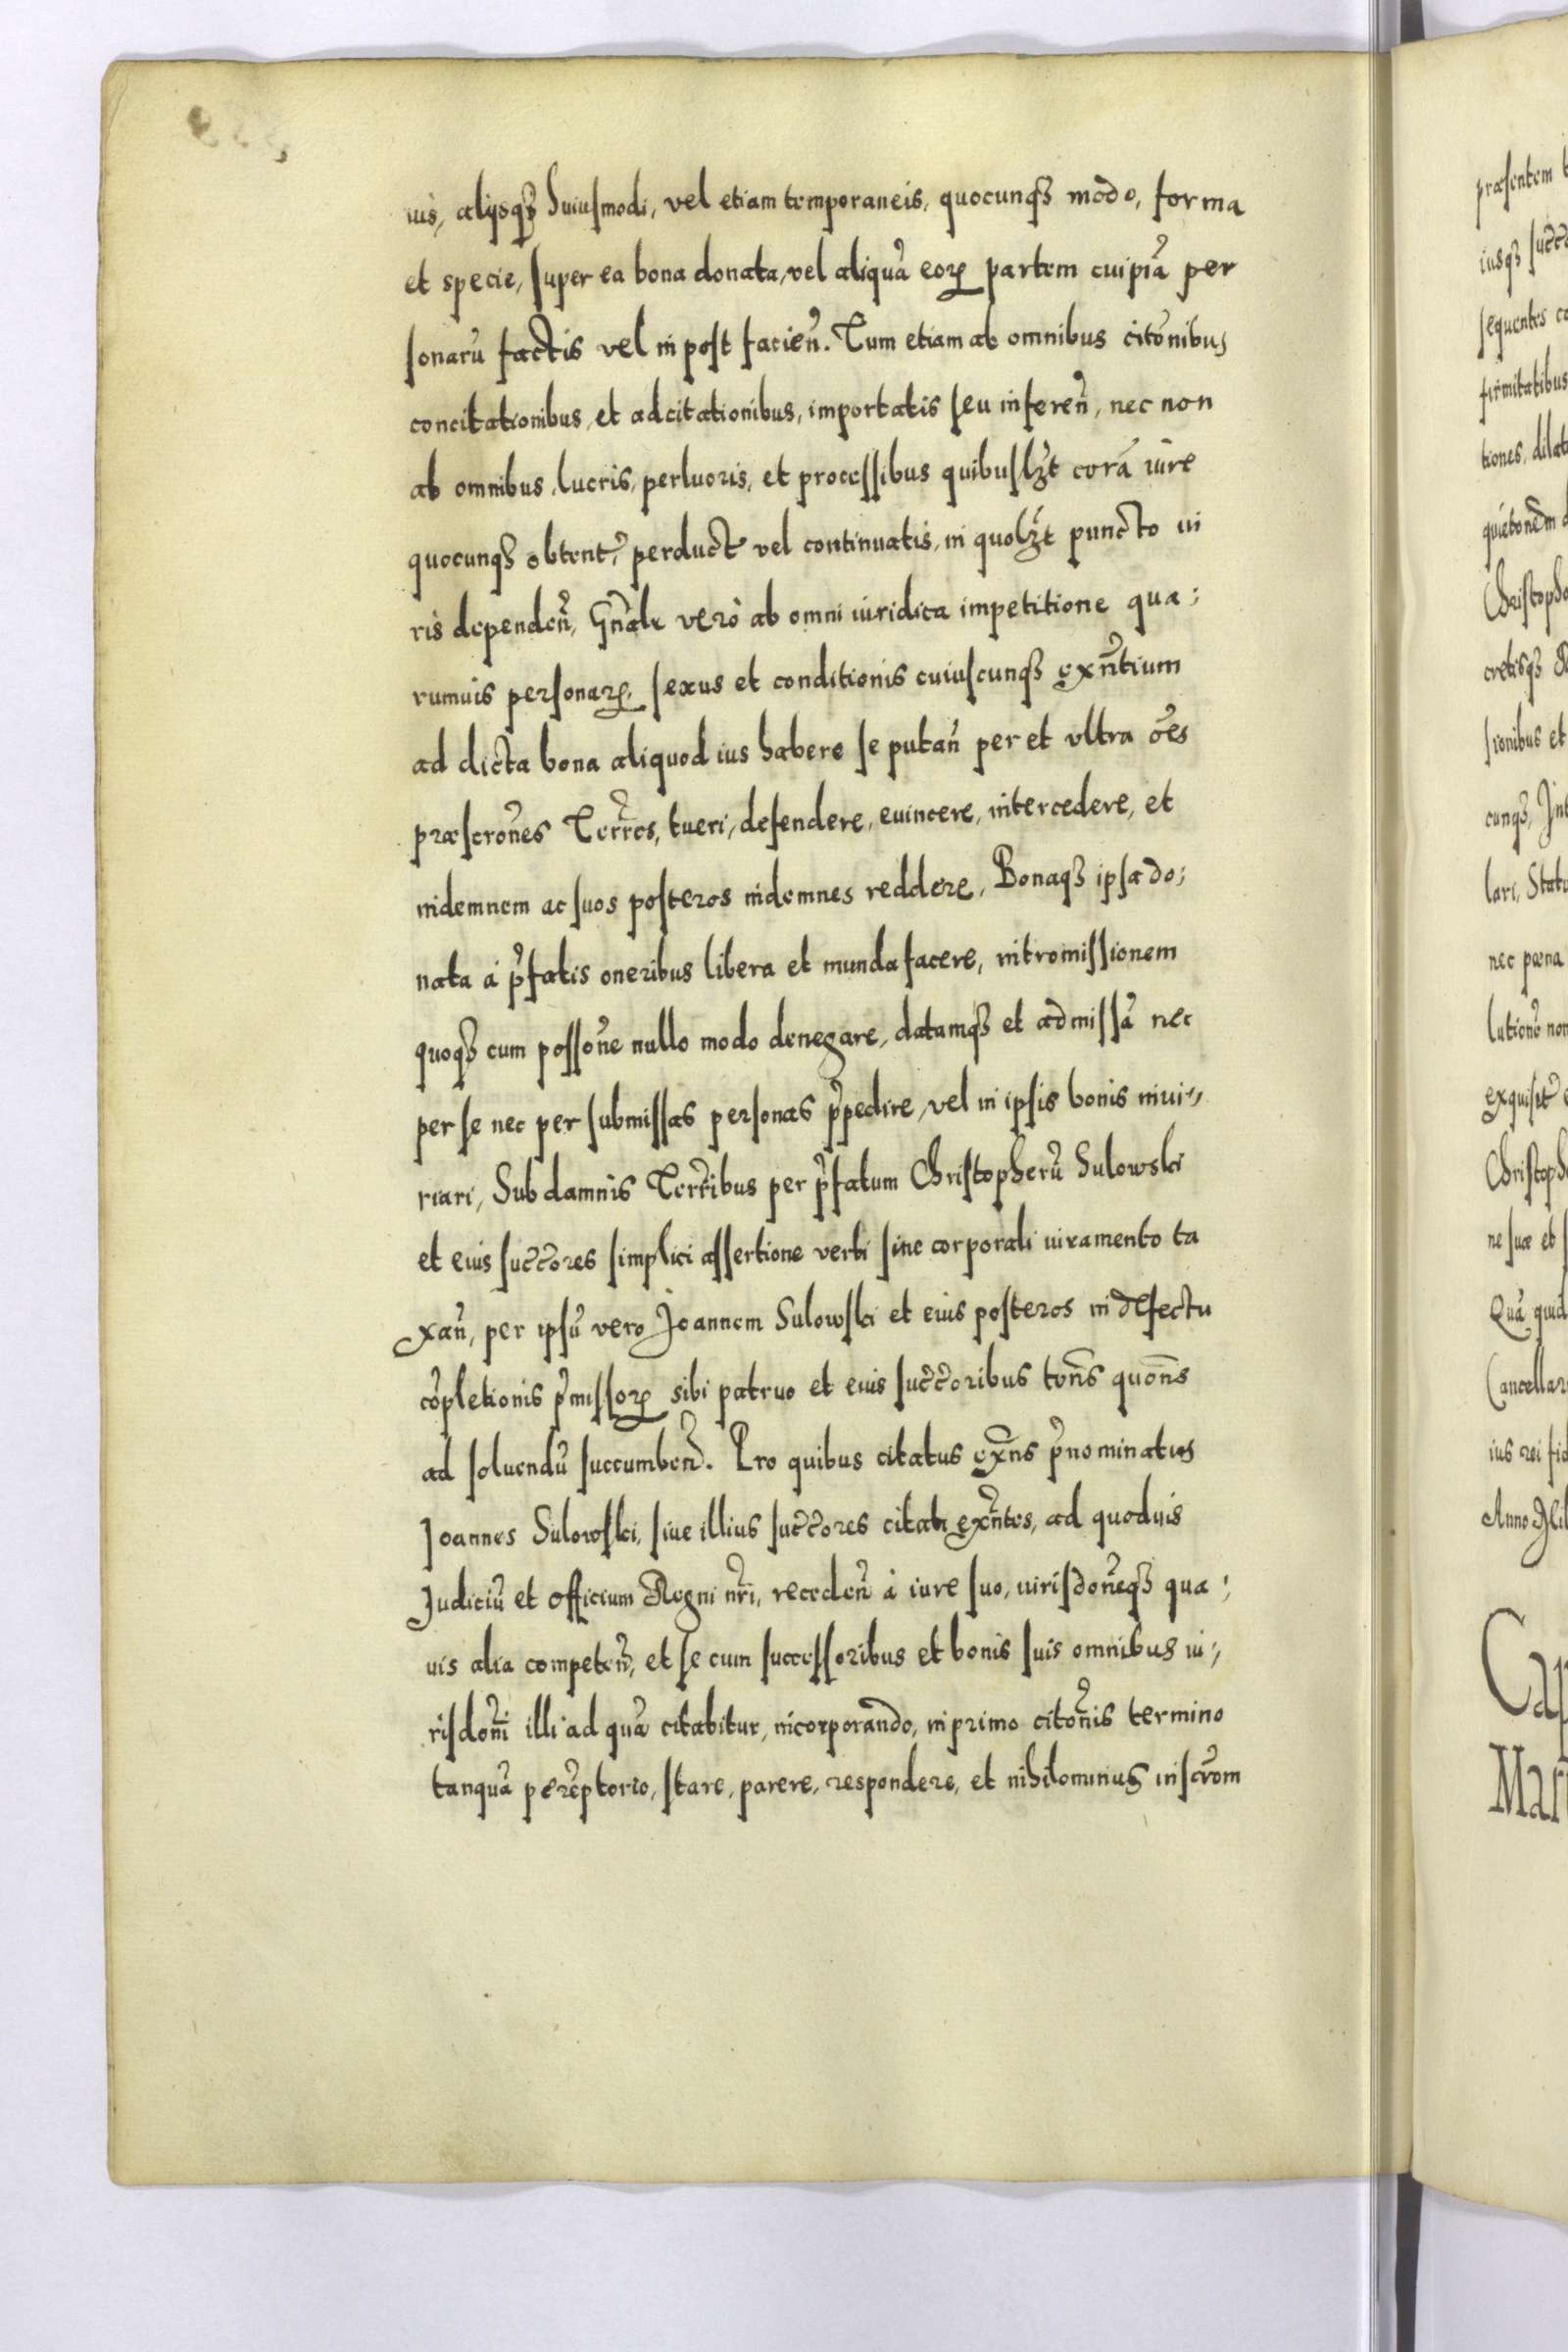 ius, alijsqȝ huiusmodi, vel etiam temporaneis, quocunqȝ modo, forma
et specie, super ea bona donata, vel aliquā eorꝝ partem cuipiā per
sonarū factis vel in post facien̄. Tum etiam ab omnibus citōnibus
concitationibus, et adcitationibus, importatis seu inferen̄, nec non
ab omnibus, lucris, perlucris, et processibus quibuslȝt corā iure
quocunqȝ obtent̄, perduct̄ vel continuatis, in quolȝt puncto iu
ris dependen̄, Gn̄alr vero ab omni iuridica impetitione qua:
rumuis personarꝝ, sexus et conditionis cuiuscunqȝ exn̄tium
ad dicta bona aliquod ius habere se putan̄ per et vltra oēs
præscrōnes Terr̄es, tueri, defendere, euincere, intercedere, et
indemnem ac suos posteros indemnes reddere, Bonaqȝ ipsa do:
nata à p̄fatis oneribus libera et munda facere, intromissionem
quoqȝ cum possōne nullo modo denegare, datamqȝ et admissā nec
per se nec per submissas personas p̄pedire, vel in ipsis bonis iniu:
riari, Sub damnis Terr̄ibus per p̄fatum Christopherū Sulowski
et eius succ̄ores simplici assertione verbi sine corporali iuramento ta
xan̄, per ipsū vero Joannem Sulowski et eius posteros in defectu
cōpletionis p̄missorꝝ sibi patruo et eius succ̄oribus ton̄s quon̄s
ad soluendū succumben̄. Pro quibus citatus exn̄s p̄nominatus
Joannes Sulowski, siue illius succ̄ores citati exn̄tes, ad quoduis
Judiciū et officium Regni nr̄i, receden̄ à iure suo, iurisdōneqȝ qua:
uis alia competen̄, et se cum successoribus et bonis suis omnibus iu:
risdōni illi ad quā citabitur, incorporando, in primo citōnis termino
tanquā perēptorio, stare, parere, respondere, et nihilominus inscrōm